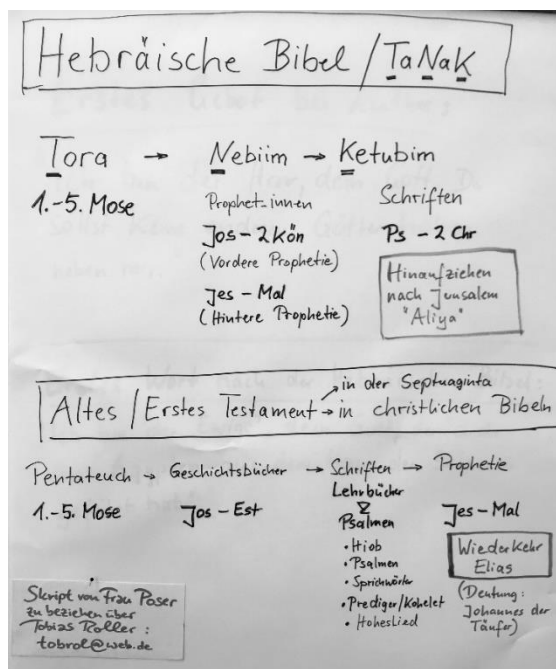 Hebräische Bibel / TaNaK
Tora → Nebiim → Ketubim
1.-5. Mose
Prophet_innen
Jos - 2 Kön
(Vordere Prophetie)
Jes - Mal
(Hintere Prophetie)
Schriften
Ps - 2 Chr
Hinaufziehen
nach Jerusalem
"Aliya"
Altes / Erstes Testament
→ in der Septuaginta
→ in christlichen Bibeln
Pentateuch → Geschichtsbücher → Schriften → Prophetie
1.-5. Mose
Jos - Est
Lehrbücher
Psalmen
• Hiob
• Psalmen
• Sprichwörter
• Prediger/Kohelet
• Hoheslied
Jes - Mal
Wiederkehr
Elias
(Deutung:
Johannes der
Täufer)
Skript von Frau Poser
zu beziehen über
Tobias Roller:
tobrol@web.de